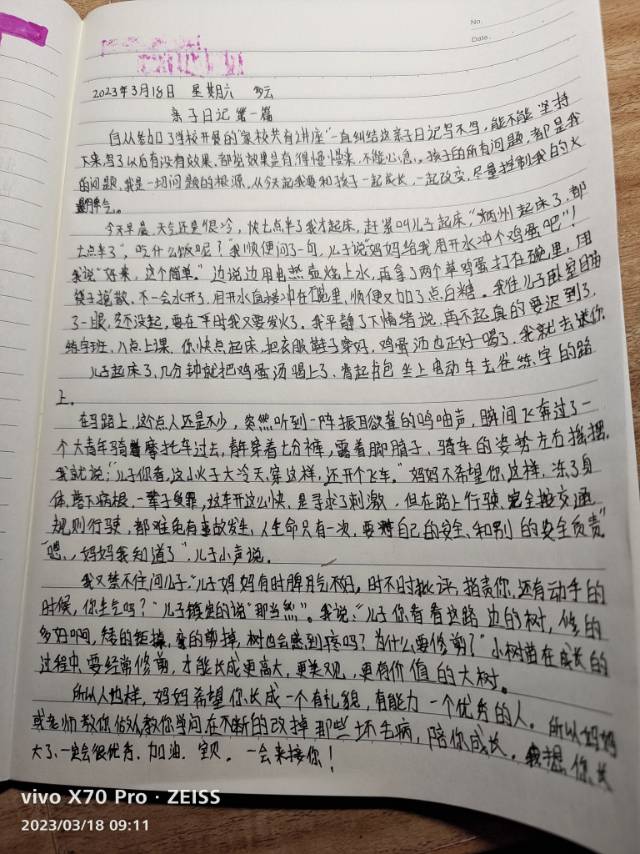 No.
Date.
2023年3月18日 星期六 多云
亲子日记第一篇
自从参加了学校开展的"家校共育讲座"一直纠结这亲子日记写不写,能不能坚持
下来,写了以后有没有效果,都说效果是有得慢慢来,不能心急。孩子的所有问题,都是我
的问题,我是一切问题的根源,从今天起我要和孩子一起成长,一起改变,尽量控制我的火
爆脾气。
今天早晨,天气还是很冷,快七点半了我才起床,赶紧叫儿子起床,"炳州起床了,都
七点半了",吃什么饭呢?"我顺便问了一句,儿子说"妈妈给我用开水冲个鸡蛋吧"!
我说"好来,这个简单。"边说边用电热壶烧上水,再拿了两个草鸡蛋打在碗里,用
筷子搅散,不一会水开了,用开水直接冲在碗里,顺便又加了点白糖。我往儿子卧室白瞄
了一眼,还没起,要在平时我又要发火了。我平静了下情绪说,再不起真的要迟到了,
练字班,八点上课,你快点起床,把衣服鞋子穿好,鸡蛋汤也正好喝了,我就去送你
儿子起床了,几分钟就把鸡蛋汤喝上了,背起书包坐上电动车去卷练字的路
上。
在马路上,这个点人还是不少,突然听到一阵振耳欲聋的鸣呦声,瞬间飞奔过了一
个大青年骑着摩托车过去,青年穿着七分裤,露着脚脖子,骑车的姿势左右摇摆,
我就说:"儿子你看,这小伙子大冷天,穿这样,还开个飞车。"妈妈不希望你这样,冻了身
体,落下病根,一辈子受罪,这车开这么快,是寻求了刺激,但在路上行驶,完全按交通
规则行驶,都难免有事故发生,人生命只有一次,要对自己的安全和别的安全负责"
"嗯,妈妈我知道了",儿子小声说。
我又禁不住问儿子:"儿子妈妈有时脾气不好,时不时批评,指责你,还有动手的
时候,你生气吗?"儿子的说"那当然"。我说:"儿子你看看这路边的树,修的
多好啊,矮的,弯的掉,树也会感到疼吗?为什么要修剪了"小树苗在成长的
过程中,要经常修剪,才能长成更高大,更美观,更有价值的大树。
所以人也样,妈妈希望你长成一个有礼貌,有能力一个优秀的人。所以妈妈
或老师教你做人教你学问在不断的改掉那些坏毛病,陪你成长。我想,你长
大了,一定会很优秀,加油,宝贝,一会来接你!
vivo X70 Pro · ZEISS
2023/03/18 09:11